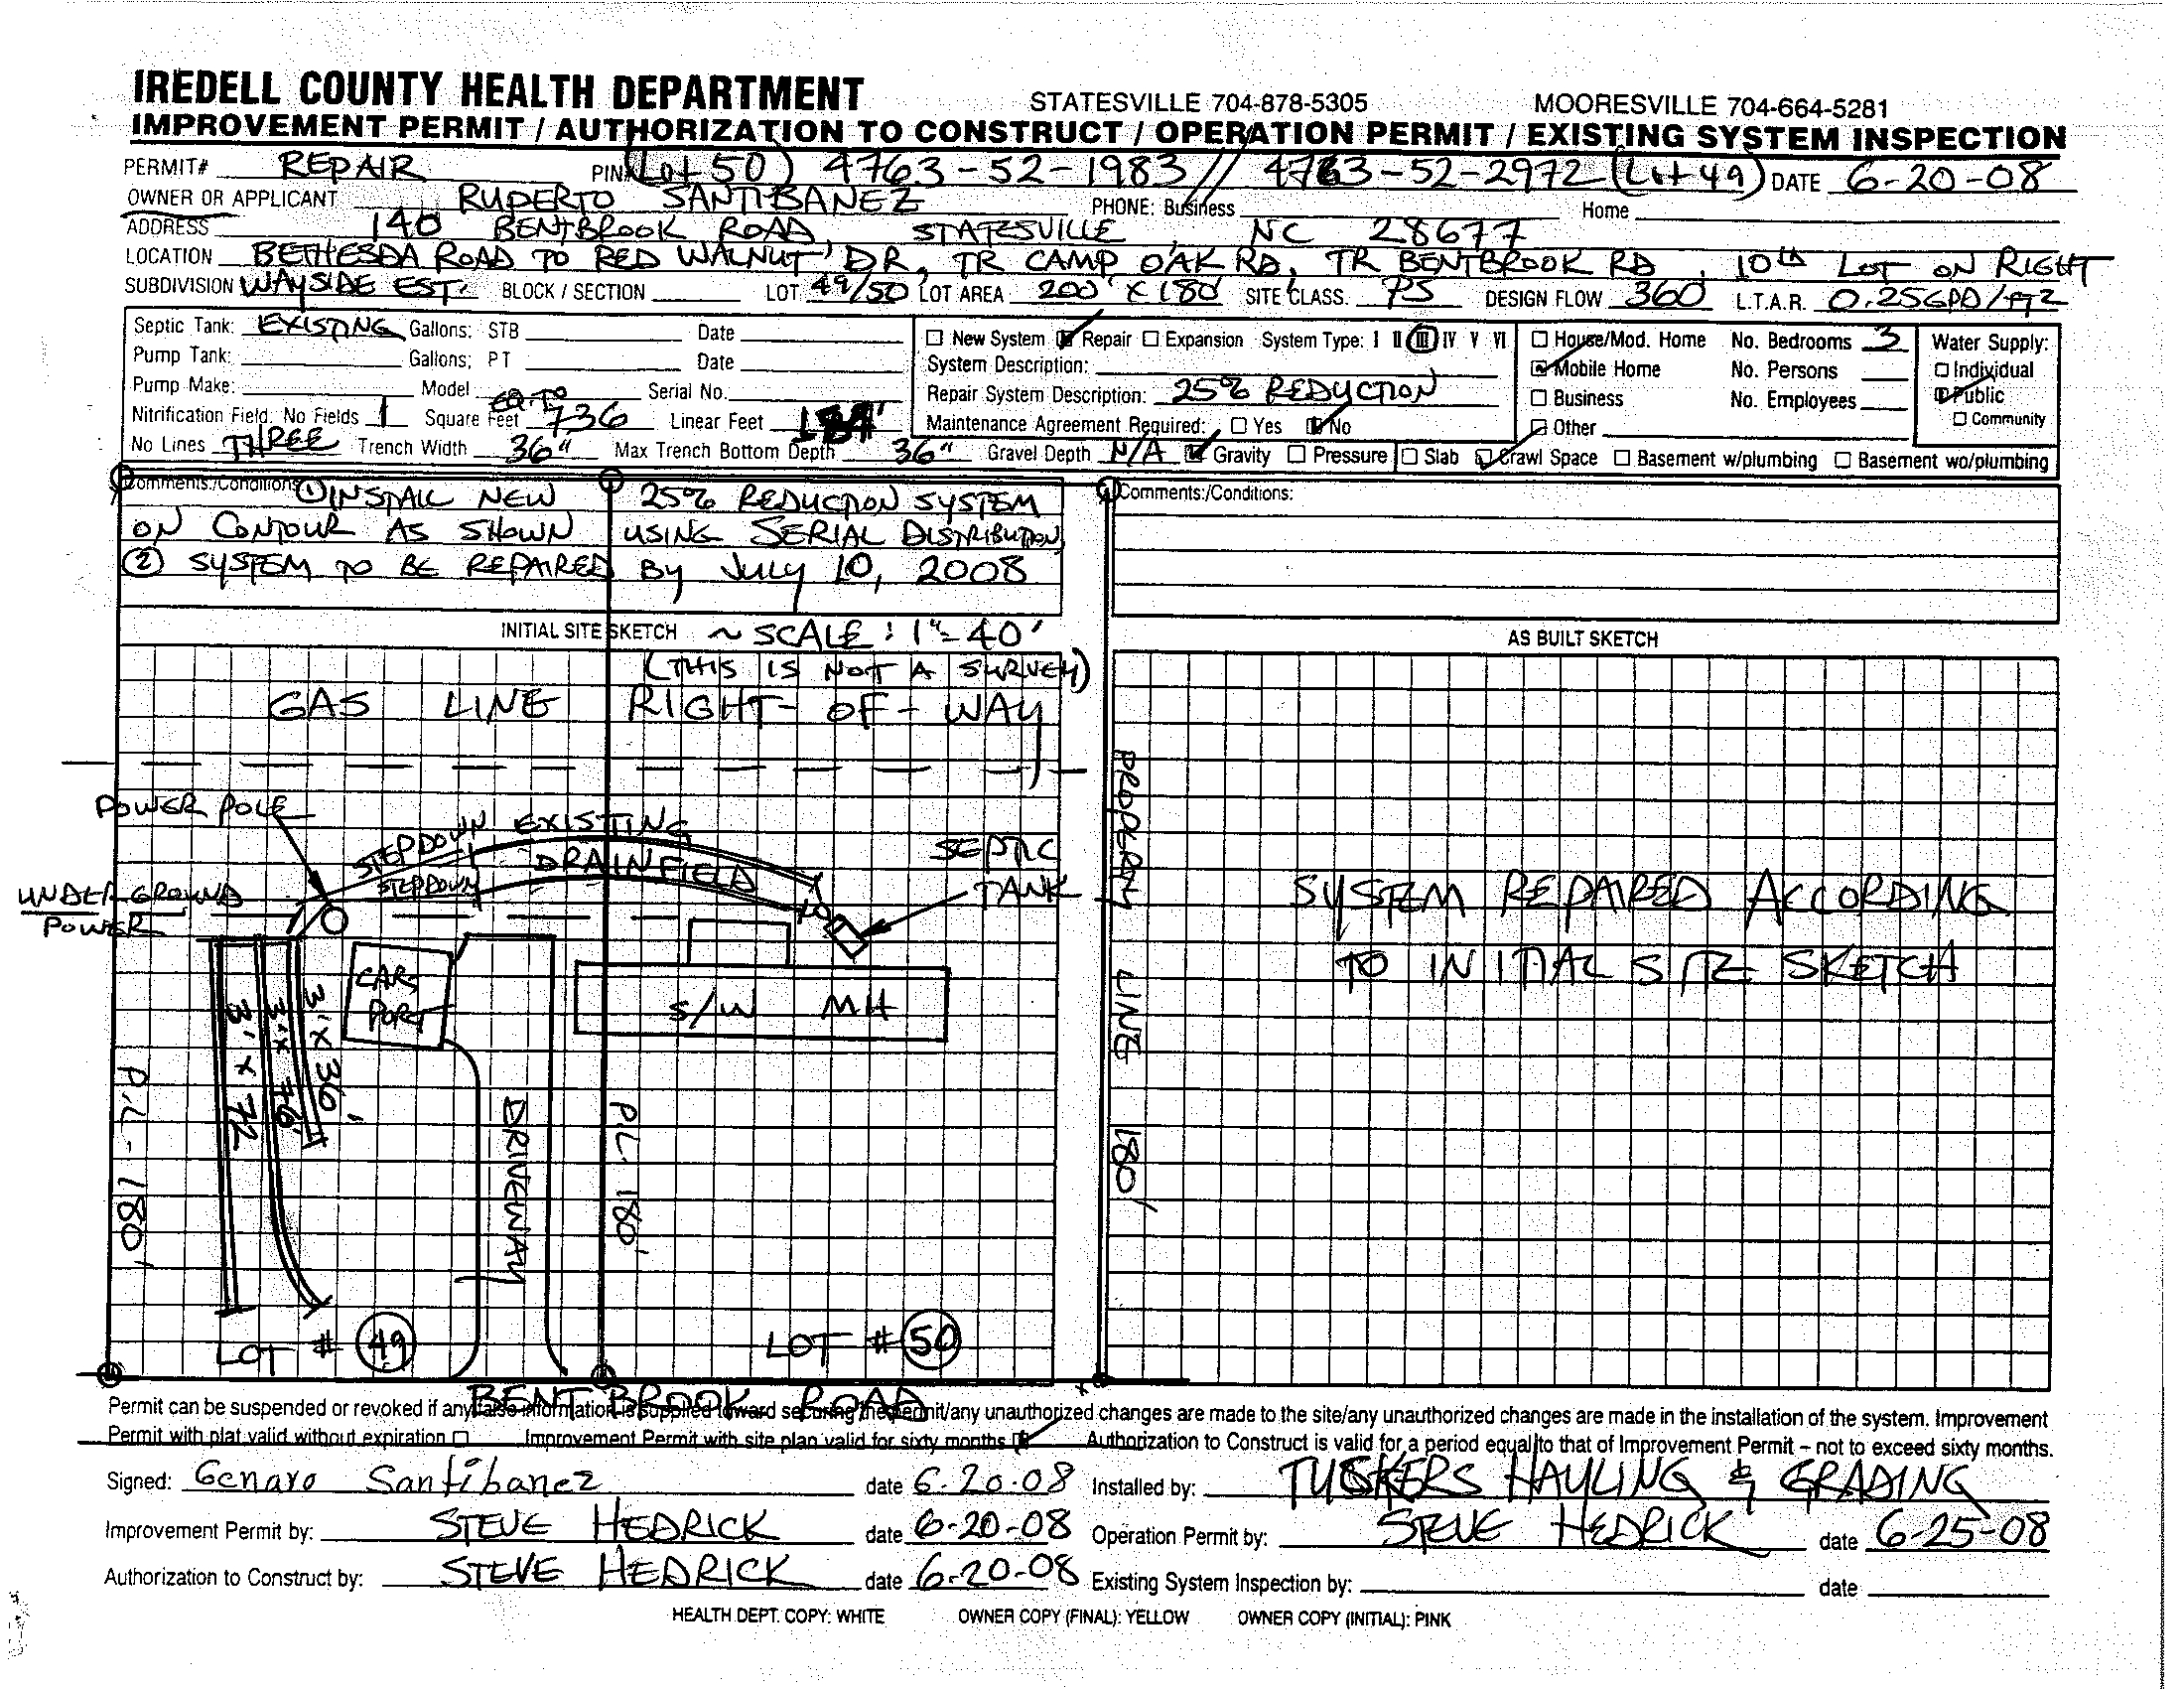 IREDELL COUNTY HEALTH DEPARTMENT STATESVILLE 704-878-5305 MOORESVILLE 704-664-5281
IMPROVEMENT PERMIT / AUTHORIZATION TO CONSTRUCT / OPERATION PERMIT / EXISTING SYSTEM INSPECTION
PERMIT# REPAIR PIN# (Lot 50) 4763-52-1983 // 4763-52-2972 (Lot 49) DATE 6-20-08
OWNER OR APPLICANT RUPERTO SANTIBANEZ PHONE: Business Home
ADDRESS 140 BENTBROOK ROAD, STATESVILLE, NC 28677
LOCATION BETHESDA ROAD TO RED WALNUT DR, TR CAMP OAK RD, TR BENTBROOK RD, 10th LOT ON RIGHT
SUBDIVISION WAYSIDE EST. BLOCK / SECTION LOT 49/50 LOT AREA 200' X 180' SITE CLASS. PS DESIGN FLOW 360 L.T.A.R. 0.25GPD/FT2
Septic Tank: EXISTING Gallons: STB Date
Pump Tank: Gallons: PT Date
Pump Make: Model Serial No.
Nitrification Field: No Fields 1 Square Feet EQ. TO 736 Linear Feet 184'
No Lines THREE Trench Width 36" Max Trench Bottom Depth 36" Gravel Depth N/A Gravity Pressure Slab Crawl Space Basement w/plumbing Basement wo/plumbing
New System Repair Expansion System Type: I II III IV V VI
System Description:
Repair System Description: 25% REDUCTION
Maintenance Agreement Required: Yes No
House/Mod. Home No. Bedrooms 3
Mobile Home No. Persons
Business No. Employees
Other
Water Supply:
Individual
Public
Community
Comments:/Conditions: ① INSTALL NEW 25% REDUCTION SYSTEM
ON CONTOUR AS SHOWN USING SERIAL DISTRIBUTION
② SYSTEM TO BE REPAIRED BY JULY 10, 2008
Comments:/Conditions:
INITIAL SITE SKETCH ~ SCALE: 1"=40'
(THIS IS NOT A SURVEY)
AS BUILT SKETCH
GAS LINE RIGHT-OF-WAY
POWER POLE
STEPDOWN EXISTING
DRAINFIELD
STEPDOWN
SEPTIC
TANK
UNDER GROUND
POWER
CAR
PORT
S/W MH
3' X 72'
3' X 76'
3' X 36'
DRIVEWAY
P.L. - 180'
P.L. 180'
PROPERTY LINE 180'
SYSTEM REPAIRED ACCORDING
TO INITIAL SITE SKETCH
LOT # 49
LOT # 50
BENT BROOK ROAD
Permit can be suspended or revoked if any false information is supplied toward securing the permit/any unauthorized changes are made to the site/any unauthorized changes are made in the installation of the system. Improvement
Permit with plat valid without expiration Improvement Permit with site plan valid for sixty months Authorization to Construct is valid for a period equal to that of Improvement Permit – not to exceed sixty months.
Signed: Genaro Santibanez date 6-20-08 Installed by: TUSKERS HAULING & GRADING
Improvement Permit by: STEVE HEDRICK date 6-20-08 Operation Permit by: STEVE HEDRICK date 6-25-08
Authorization to Construct by: STEVE HEDRICK date 6-20-08 Existing System Inspection by: date
HEALTH DEPT. COPY: WHITE OWNER COPY (FINAL): YELLOW OWNER COPY (INITIAL): PINK